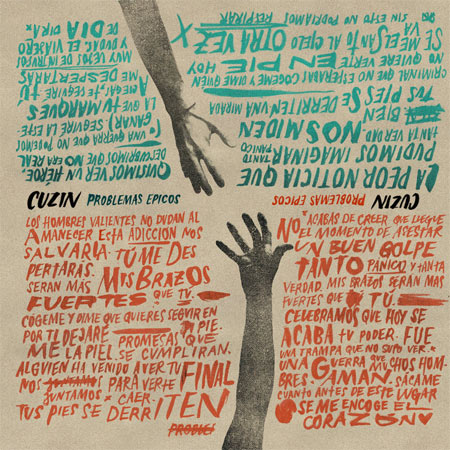 CUZIN PROBLEMAS EPICOS
LOS HOMBRES VALIENTES NO DUDAN AL
AMANECER ESTA ADICCION NOS
SALVARIA. TÚ ME DES
PERTARÁS.
SERÁN MÁS MIS BRAZOS
FUERTES QUE TU.
COGEME Y DIME QUE QUIERES SEGUIR EN
POR TI DEJARÉ PIE.
PROMESAS QUE
ME LA PIEL. SE CUMPLIRAN.
ALGUIEN HA VENIDO A VER TU
NOS PARA VERTE FINAL
JUNTAMOS CAER.
TUS PIES SE DERRITEN
NO ACABAS DE CREER QUE LLEGUE
EL MOMENTO DE ASESTAR
UN BUEN GOLPE
TANTO PANICO Y TANTA
VERDAD. MIS BRAZOS SERAN MAS
FUERTES QUE TÚ.
CELEBRAMOS QUE HOY SE
ACABA TU PODER. FUE
UNA TRAMPA QUE NO SUPO VER.
UNA GUERRA QUE MUCHOS HOM-
BRES AMAN. SÁCAME
CUANTO ANTES DE ESTE LUGAR
SE ME ENCOGE EL
CORAZON
CUZIN PROBLEMAS EPICOS
LA PEOR NOTICIA QUE
PUDIMOS IMAGINAR
TANTA VERDAD TANTO PANICO
NOS MIDEN
BIEN
TUS PIES SE DERRITEN UNA MIRADA
CRIMINAL QUE NO ESPERABAS COGEME Y DIME QUIEN
NO QUIERE VERTE EN PIE HOY
SE ME VA EL SANTO AL CIELO OTRA VEZ
SIN ESTO NO PODRIAMOS RESPIRAR
QUISIMOS VER UN HÉROE.
DESCUBRIMOS QUE NO ERA REAL
UNA QUE NO PODEMOS
GANAR) SEGUIRE LA
LA QUE TU MARQUES
TE SEGUIRE TÚ
ME DESPERTARAS
MUY LEJOS DE INTRUSOS
Y DUDAS. EL VIAJERO
DE DIA DIRA